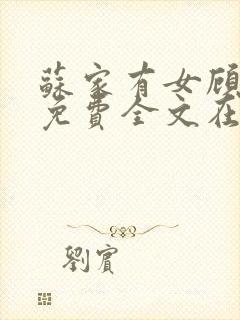 蘇家有女顾
免費全文在
劉賓